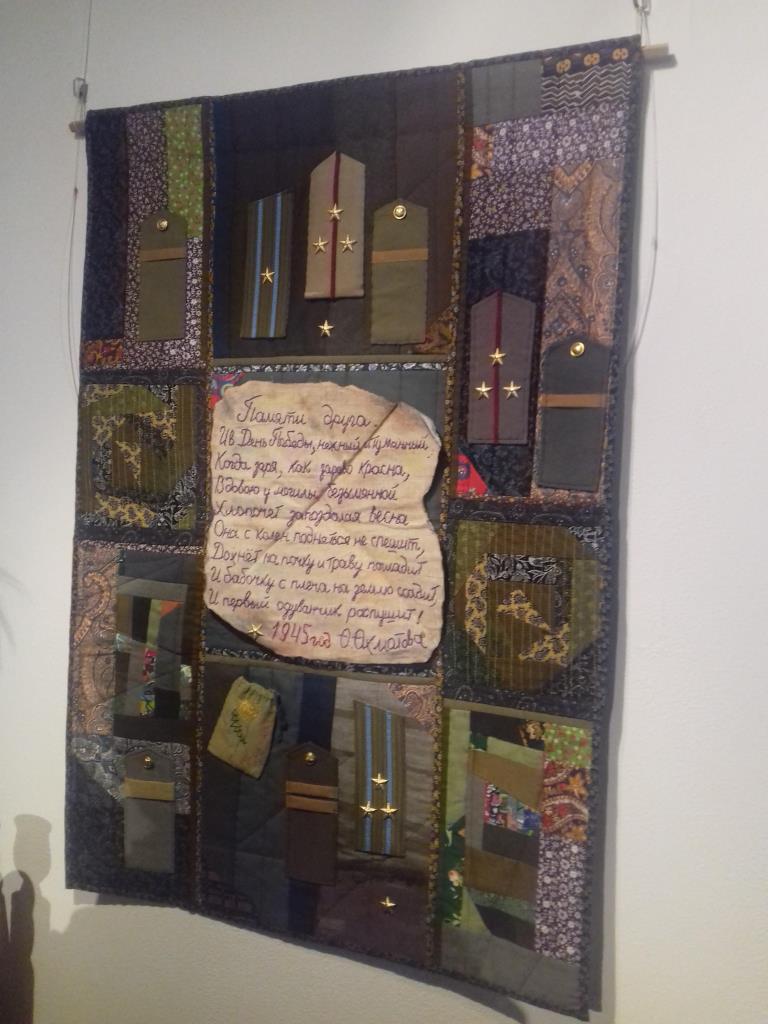 Памяти друга.
И в День Победы, нежный и туманный
Когда заря, как зарево красна,
Вдовою у могилы безымянной
Хлопочет запоздалая весна
Она с колен подняться не спешит,
Дохнёт на почку и траву погладит
И бабочку с плеча на землю ссадит,
И первый одуванчик распушит!
1945 год А. Ахматова